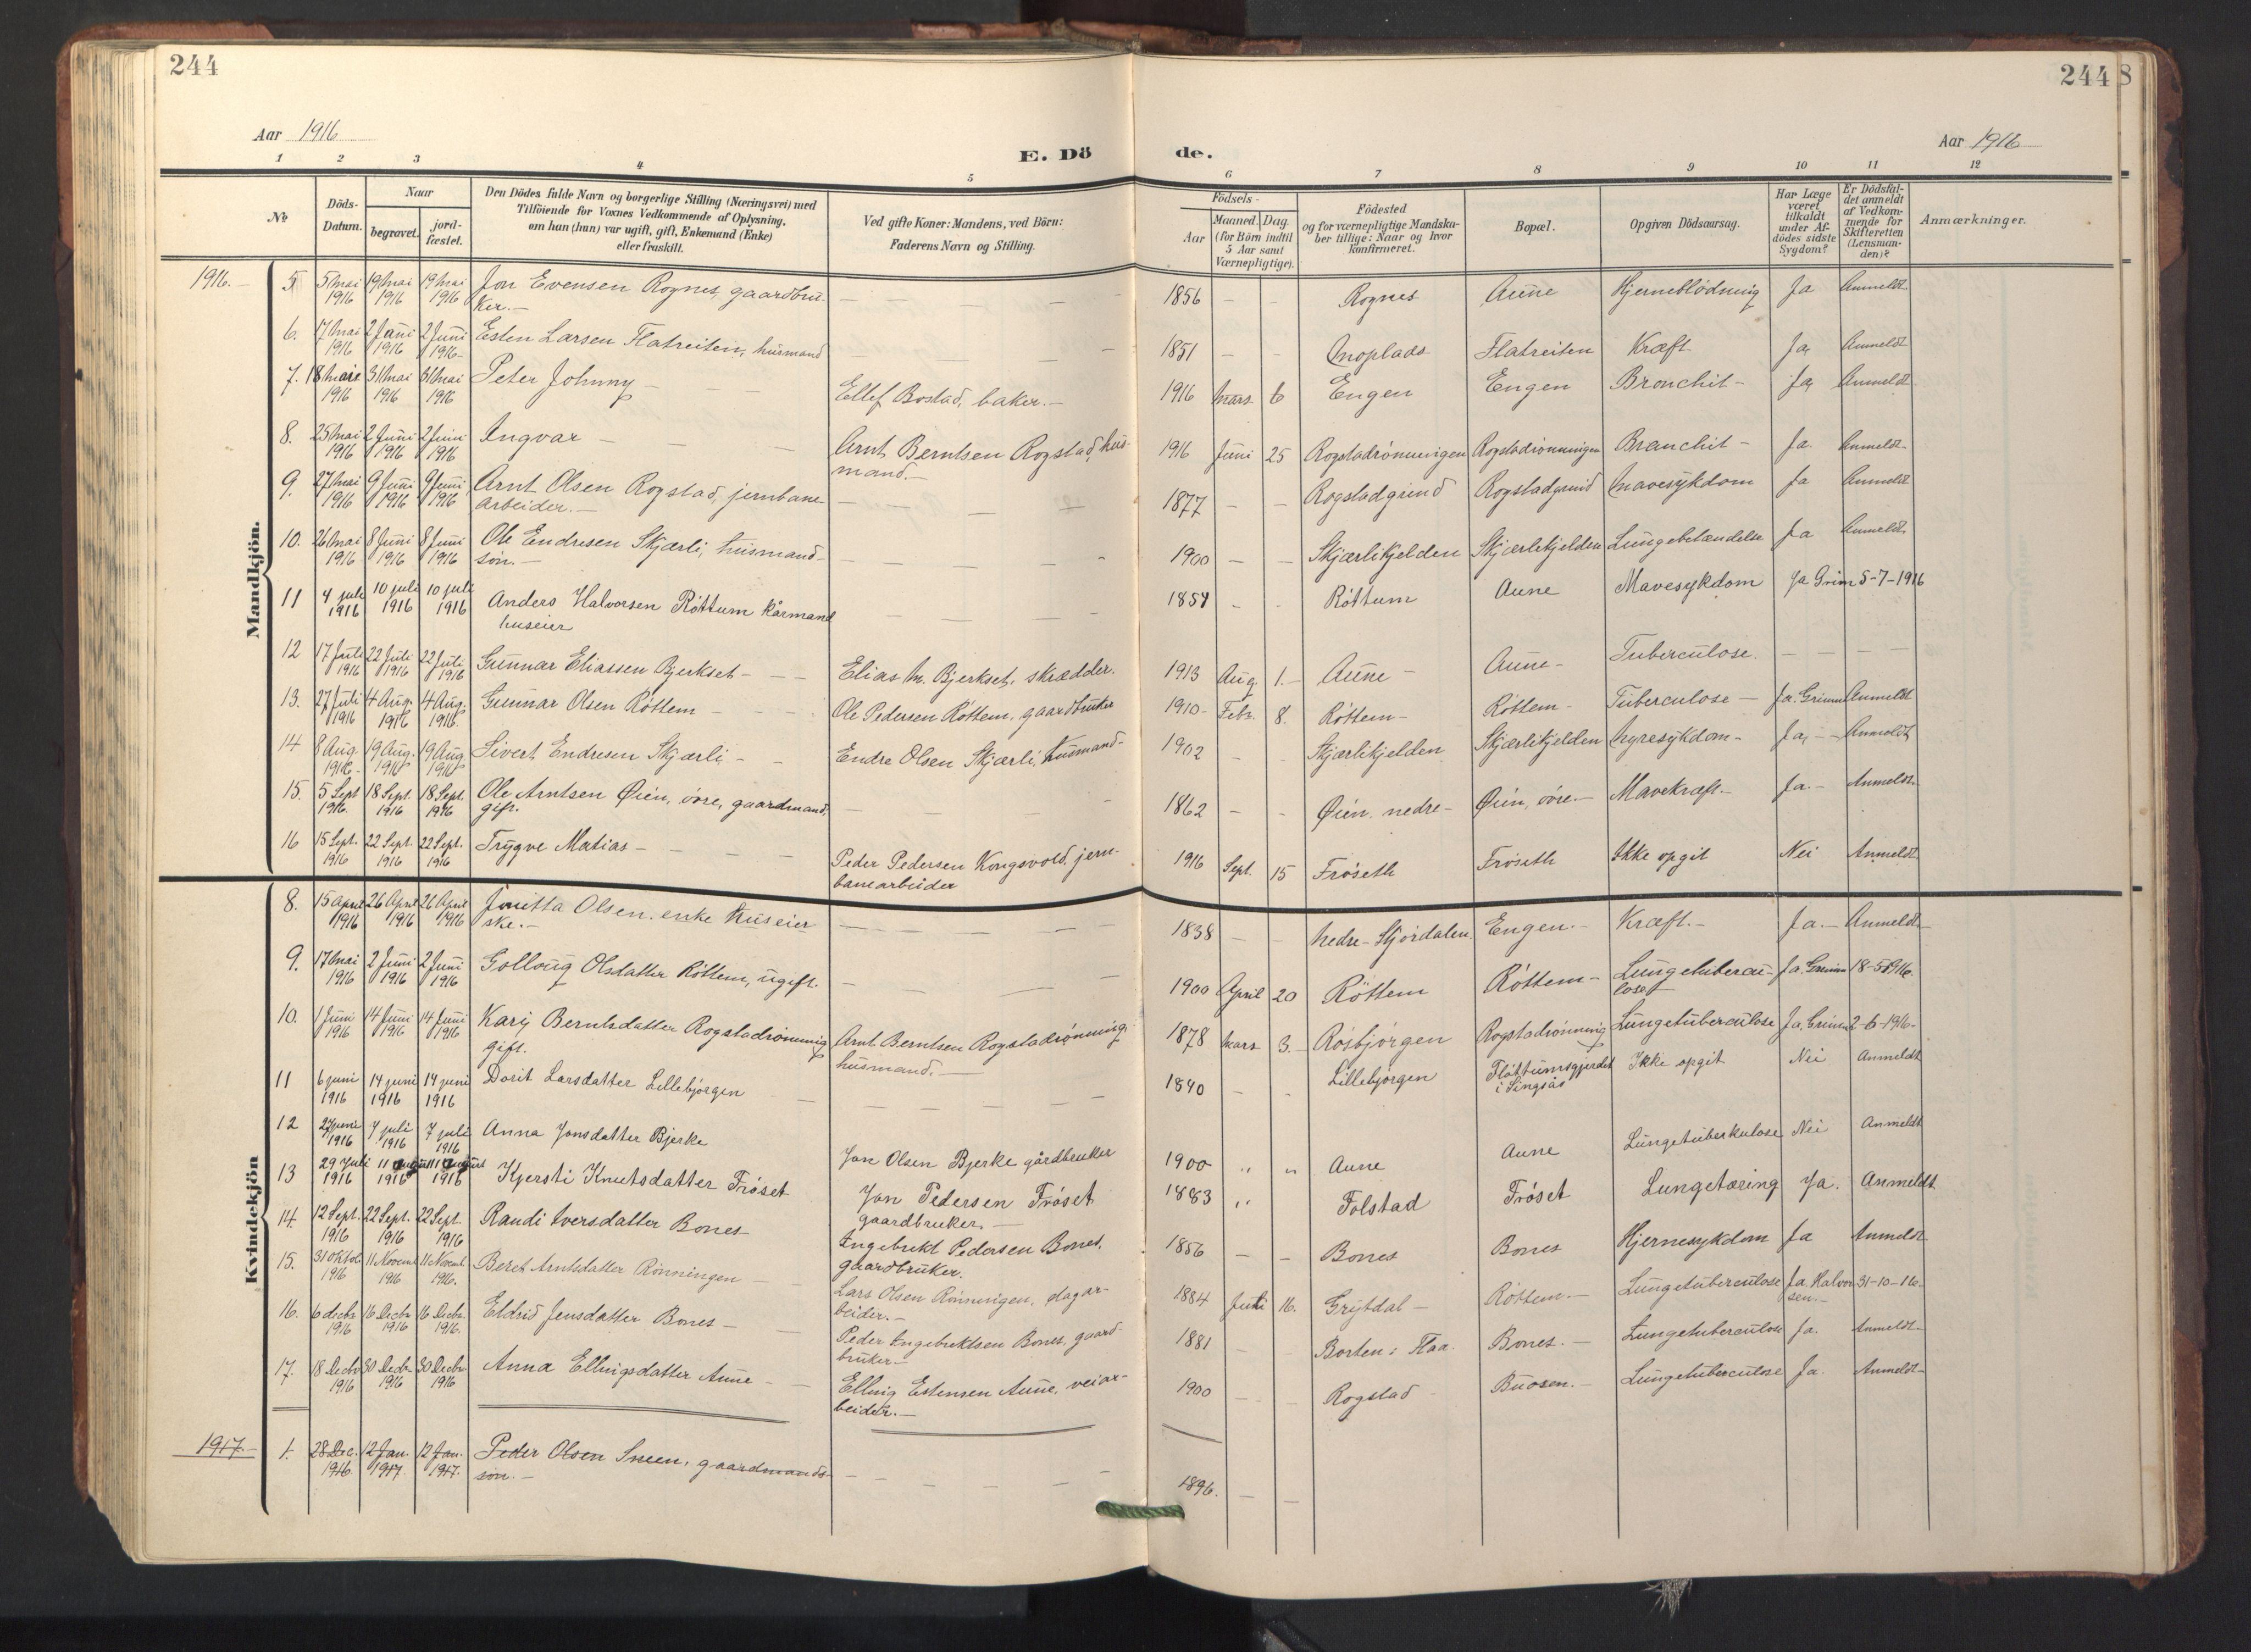 244
244 8
Aar 1916
Aar 1916
E. Dö de.
1 2 3 4 5 6 7 8 9 10 11 12
No
Döds-Datum.
Naar
begravet.
jord-fæstet.
Den Dödes fulde Navn og borgerlige Stilling (Næringsvei) med
Tilföiende for Voxnes Vedkommende af Oplysning,
om han (hun) var ugift, gift, Enkemand (Enke)
eller fraskilt.
Ved gifte Koner: Mandens, ved Börn:
Faderens Navn og Stilling.
Födsels-
Aar
Maaned. Dag
(for Börn indtil
5 Aar samt
Værnepligtige).
Födested
og for værnepligtige Mandska-
ber tillige: Naar og hvor
konfirmeret.
Bopæl.
Opgiven Dödsaarsag.
Har Læge
været
tilkaldt
under Af-
dödes sidste
Sygdom?
Er Dödsfal-
det anmeldt
af Vedkom-
mende for
Skifteretten
(Lensman-
den)?
Anmærkninger.
Mandkjön.
1916. 5 5 Mai 1916 19 Mai 1916 19 Mai 1916 Jon Evensen Rognes, gaardbru-
ker. — 1856 Rognes Aune Hjerneblödning Ja Anmeldt.
6. 17 Mai 1916 2 Juni 1916 2 Juni 1916 Esten Larsen Flatreiten, husmand 1851 Moplads Flatreiten Kræft Ja Anmeldt
7. 18 Mai 1916 31 Mai 1916 31 Mai 1916 Peter Johnny — Ellef Bostad, baker. — 1916 Mars 6 Engen Engen Bronchit — Ja Anmeldt
8. 25 Mai 1916 2 Juni 1916 2 Juni 1916 Ingvar — Arnt Berntsen Rogstad, hus-
mand. — 1916 Juni 25 Rogstadrönningen Rogstadrönningen Bronchit — Ja. Anmeldt
9. 27 Mai 1916 9 Juni 1916 9 Juni 1916 Arnt Olsen Rogstad, jernbane
arbeider. — 1877 Rogstadgrind Rogstadgrind Mavesykdom Ja Anmeldt
10. 26 Mai 1916 8 Juni 1916 8 Juni 1916 Ole Endresen Skjærli, husmand-
sön. — 1900 Skjærlikjelden Skjærlikjelden Lungebetændelse Ja Anmeldt.
11 4 juli 1916 10 juli 1916 10 juli 1916 Anders Halvorsen Röttum kårmand
huseier 1854 Röttum Aune Mavesykdom Ja Grim 5-7-1916
12 17 Juli 1916 22 Juli 1916 22 Juli 1916 Gunnar Eliassen Bjerkset — Elias M. Bjerkset, skrædder. 1913 Aug. 1. — Aune — Aune — Tuberculose.
13. 27 Juli 1916 4 Aug. 1916 4 Aug. 1916 Gunnar Olsen Röttem — Ole Pedersen Röttem, gaardbruker 1910 — Febr. 8. Röttem — Röttem — Tuberculose — Ja. Grimm Anmeldt
14 8 Aug. 1916 19 Aug. 1916 19 Aug. 1916 Sivert Endresen Skjærli — Endre Olsen Skjærli, husmand — 1902 Skjærlikjelden Skjærlikjelden Nyresykdom — Ja, — Anmeldt
15. 5 Sept 1916. 18 Sept. 1916 18 Sept. 1916 Ole Arntsen Øien, övre, gaardmand,
gift. 1862 Øien. nedre — Øien, övre. — Mavekræft. — Ja. — Anmeldt.
16 15 Sept. 1916 22 Sept. 1916 22 Sept. 1916 Trygve Matias — Peder Pedersen Kongsvold, jern-
banearbeider 1916 Sept. 15 Fröseth Fröseth Ikke opgit Nei Anmeldt
Kvindekjön
8. 15 April 1916 26 April 1916 26 April 1916 Jonetta Olsen, enke huseier
ske. — 1838 Nedre-Stjördalen Engen. — Kræft. — Ja. — Anmeldt
9. 17 Mai 1916 2 Juni 1916 2 Juni 1916 Gollaug Olsdatter Röttem, ugift. 1900 April 20 Röttem Röttem — Lungetubercu-
lose Ja Grimm 18-5-1916.
10. 1 Juni 1916 14 Juni 1916 14 Juni 1916 Kari Berntsdatter Rogstadrönning
gift. Arnt Berntsen Rogstadrönning,
husmand. — 1878 Mars 3. Rösbjörgen Rogstadrönning Lungetuberculose Ja, Grimm 2-6-1916 —
11 6 juni 1916 14 juni 1916 14 juni 1916 Dorit Larsdatter Lillebjörgen 1840 Lillebjörgen Flöttumsgjerdet
i Singsås Ikke opgit Nei Anmeldt
12 27 juni 1916 7 juli 1916 7 juli 1916 Anna Jonsdatter Bjerke Jon Olsen Bjerke gårdbruker 1900 „ „ Aune Aune Lungetuberkulose Nei Anmeldt
13 29 Juli 1916 11 August 1916 11 August 1916 Kjersti Knutsdatter Fröset Jon Pedersen Fröset
gaardbruker. — 1883 „ Folstad Fröset Lungetæring Ja. Anmeldt
14. 12 Sept. 1916 22 Sept. 1916 22 Sept. 1916 Randi Iversdatter Bones Ingebrikt Pedersen Bones,
gaardbruker. 1856 Bones Bones Hjernesykdom Ja Anmeldt
15. 31 Oktob 1916 11 Novemb 1916 11 Novemb 1916. Beret Arntsdatter Rönningen Lars Olsen Rönningen, dagar-
beider. — 1884 Juli 16. Grytdal — Röttem. — Lungetuberculose Ja. Halvor
sen. — 31-10-16.
16. 6 decbr 1916 16 Decbr 1916 16 Decbr. 1916. Eldrid Jensdatter Bones — Peder Ingebriktsen Bones, gaard-
bruker — 1881 Borten i Flaa. Bones. — Lungetuberculose Ja. Anmeldt
17. 18 Decbr 1916 30 Decbr 1916 30 Decbr 1916 Anna Ellingsdatter Aune — Elling Estensen Aune, veiar-
beider. — 1900 Rogstad Buosen. — Lungetuberculose Ja. Anmeldt
1917. 1. 28 Dec. 1916 12 Jan. 1917 12 Jan. 1917. Peder Olsen Sneen, gaardmands-
sön. — 1896.